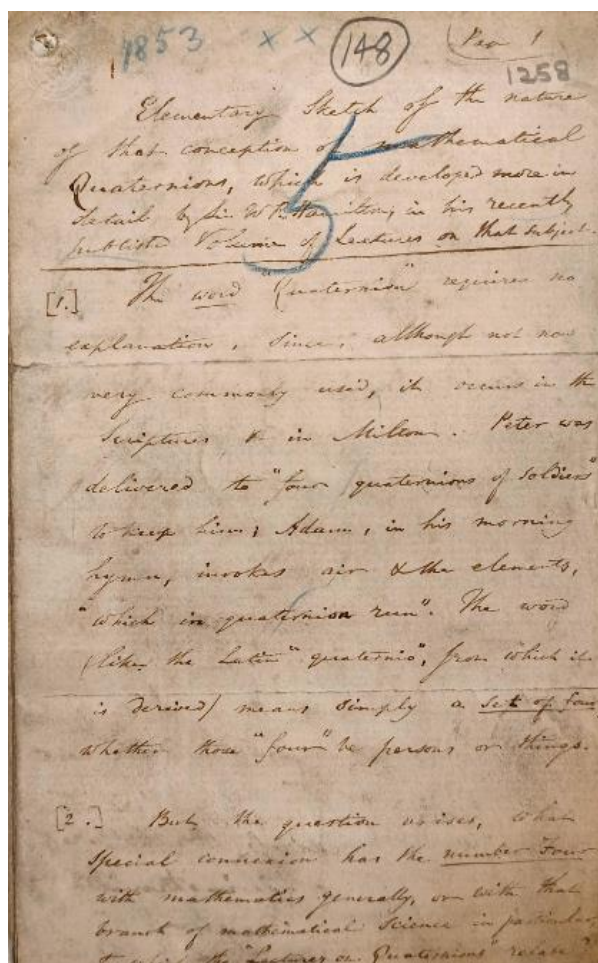 1853 x x 148 Pro 1
1258
Elementary Sketch of the nature
of that conception of mathematical
Quaternions, which is developed more in
detail by Sir W. R. Hamilton, in his recently
published Volume of Lectures on that subject.
[1.] The word "Quaternion" requires no
explanation, since, although not now
very commonly used, it occurs in the
Scriptures & in Milton. Peter was
delivered to "four quaternions of soldiers"
to keep him; Adam, in his morning
hymn, invokes air & the elements,
"which in quaternion run". The word
(like the Latin "quaternio", from which it
is derived) means simply a set of four
whether those "four" be persons or things.
[2.] But the question arises, what
special connexion has the number Four
with mathematics generally, or with that
branch of mathematical science in particular,
to which the "Lectures on Quaternions" relate?